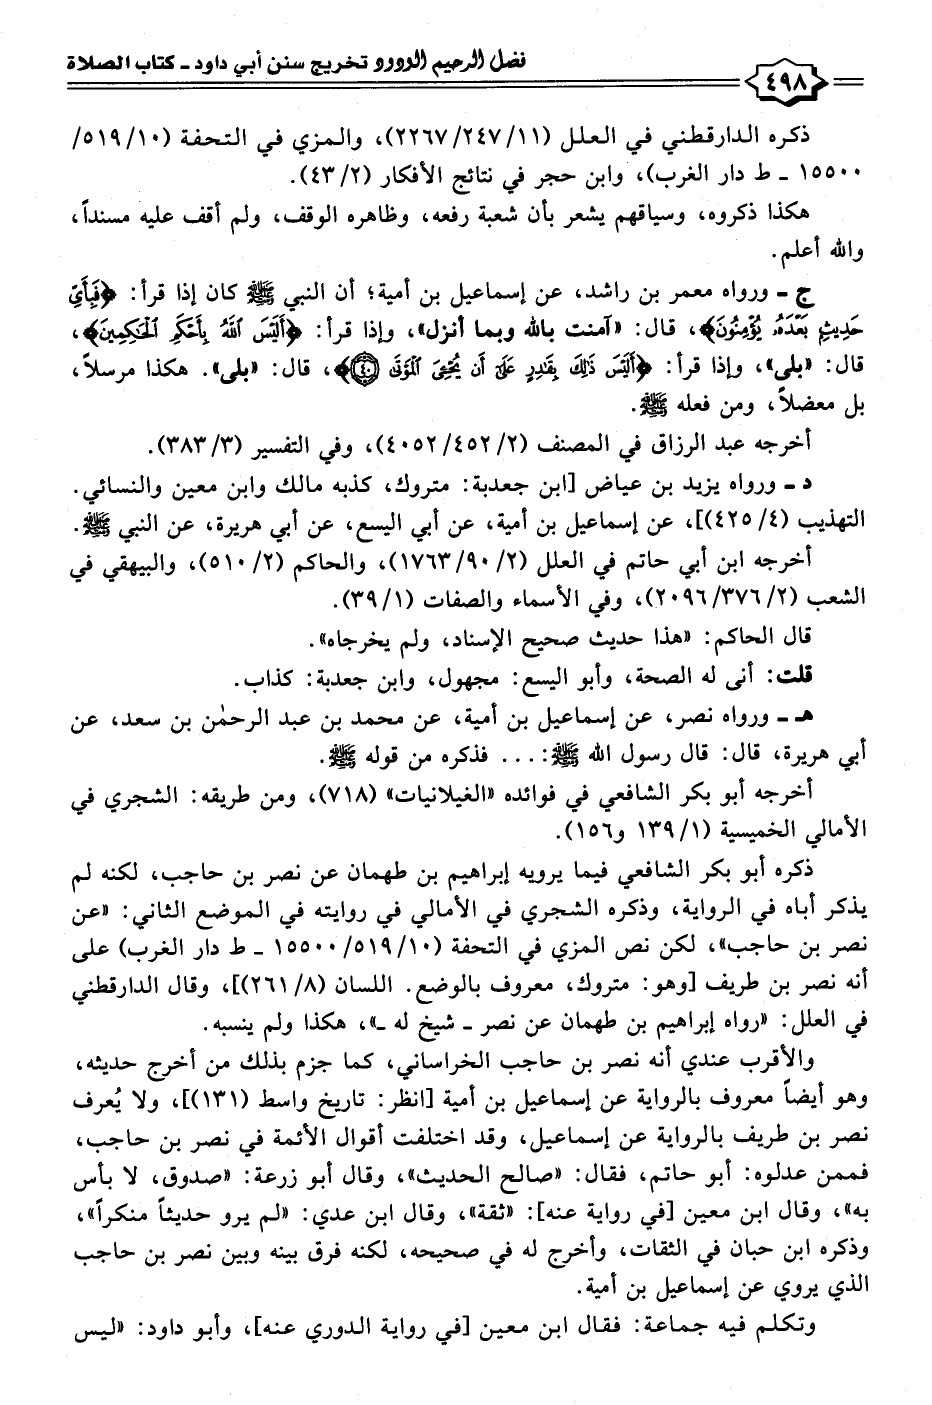 فضل الرحيم الودود تخريج سنن أبي داود - كتاب الصلاة
٤٩٨
ذكره الدارقطني في العلل (١١/ ٢٤٧/ ٢٢٦٧)، والمزي في التحفة (١٠/ ٥١٩/
١٥٥٠٠ - ط دار الغرب)، وابن حجر في نتائج الأفكار (٢/ ٤٣).
هكذا ذكروه، وسياقهم يشعر بأن شعبة رفعه، وظاهره الوقف، ولم أقف عليه مسنداً،
والله أعلم.
ج - ورواه معمر بن راشد، عن إسماعيل بن أمية؛ أن النبي ﷺ كان إذا قرأ: ﴿فَبِأَيِّ
حَدِيثٍ بَعْدَهُ يُؤْمِنُونَ﴾، قال: «آمنت بالله وبما أنزل»، وإذا قرأ: ﴿أَلَيْسَ اللَّهُ بِأَحْكَمِ الْحَاكِمِينَ﴾،
قال: «بلى»، وإذا قرأ: ﴿أَلَيْسَ ذَلِكَ بِقَادِرٍ عَلَى أَن يُحْيِيَ الْمَوْتَى ٤٠﴾، قال: «بلى». هكذا مرسلاً،
بل معضلاً، ومن فعله ﷺ.
أخرجه عبد الرزاق في المصنف (٢/ ٤٥٢/ ٤٠٥٢)، وفي التفسير (٣/ ٣٨٣).
د - ورواه يزيد بن عياض [ابن جعدبة: متروك، كذبه مالك وابن معين والنسائي.
التهذيب (٤/ ٤٢٥)]، عن إسماعيل بن أمية، عن أبي اليسع، عن أبي هريرة، عن النبي ﷺ.
أخرجه ابن أبي حاتم في العلل (٢/ ٩٠/ ١٧٦٣)، والحاكم (٢/ ٥١٠)، والبيهقي في
الشعب (٢/ ٣٧٦/ ٢٠٩٦)، وفي الأسماء والصفات (١/ ٣٩).
قال الحاكم: «هذا حديث صحيح الإسناد، ولم يخرجاه».
قلت: أنى له الصحة، وأبو اليسع: مجهول، وابن جعدبة: كذاب.
هـ - ورواه نصر، عن إسماعيل بن أمية، عن محمد بن عبد الرحمٰن بن سعد، عن
أبي هريرة، قال: قال رسول الله ﷺ: ... فذكره من قوله ﷺ.
أخرجه أبو بكر الشافعي في فوائده «الغيلانيات» (٧١٨)، ومن طريقه: الشجري في
الأمالي الخميسية (١/ ١٣٩ و١٥٦).
ذكره أبو بكر الشافعي فيما يرويه إبراهيم بن طهمان عن نصر بن حاجب، لكنه لم
يذكر أباه في الرواية، وذكره الشجري في الأمالي في روايته في الموضع الثاني: «عن
نصر بن حاجب»، لكن نص المزي في التحفة (١٠/ ٥١٩/ ١٥٥٠٠ - ط دار الغرب) على
أنه نصر بن طريف [وهو: متروك، معروف بالوضع. اللسان (٨/ ٢٦١)]، وقال الدارقطني
في العلل: «رواه إبراهيم بن طهمان عن نصر - شيخ له -»، هكذا ولم ينسبه.
والأقرب عندي أنه نصر بن حاجب الخراساني، كما جزم بذلك من أخرج حديثه،
وهو أيضاً معروف بالرواية عن إسماعيل بن أمية [انظر: تاريخ واسط (١٣١)]، ولا يُعرف
نصر بن طريف بالرواية عن إسماعيل، وقد اختلفت أقوال الأئمة في نصر بن حاجب،
فممن عدلوه: أبو حاتم، فقال: «صالح الحديث»، وقال أبو زرعة: «صدوق، لا بأس
به»، وقال ابن معين [في رواية عنه]: «ثقة»، وقال ابن عدي: «لم يرو حديثاً منكراً»،
وذكره ابن حبان في الثقات، وأخرج له في صحيحه، لكنه فرق بينه وبين نصر بن حاجب
الذي يروي عن إسماعيل بن أمية.
وتكلم فيه جماعة: فقال ابن معين [في رواية الدوري عنه]، وأبو داود: «ليس